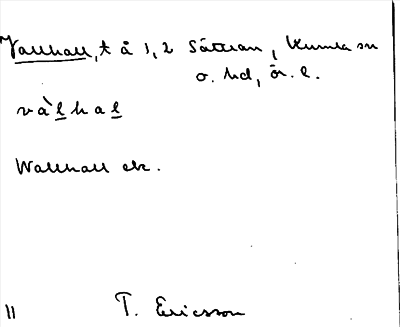 Vallhall, t å 1, 2 Sättran, Kumla sn
o. hd, ör. l.
vàlhal
Wallhall ek.
11 T. Ericsson